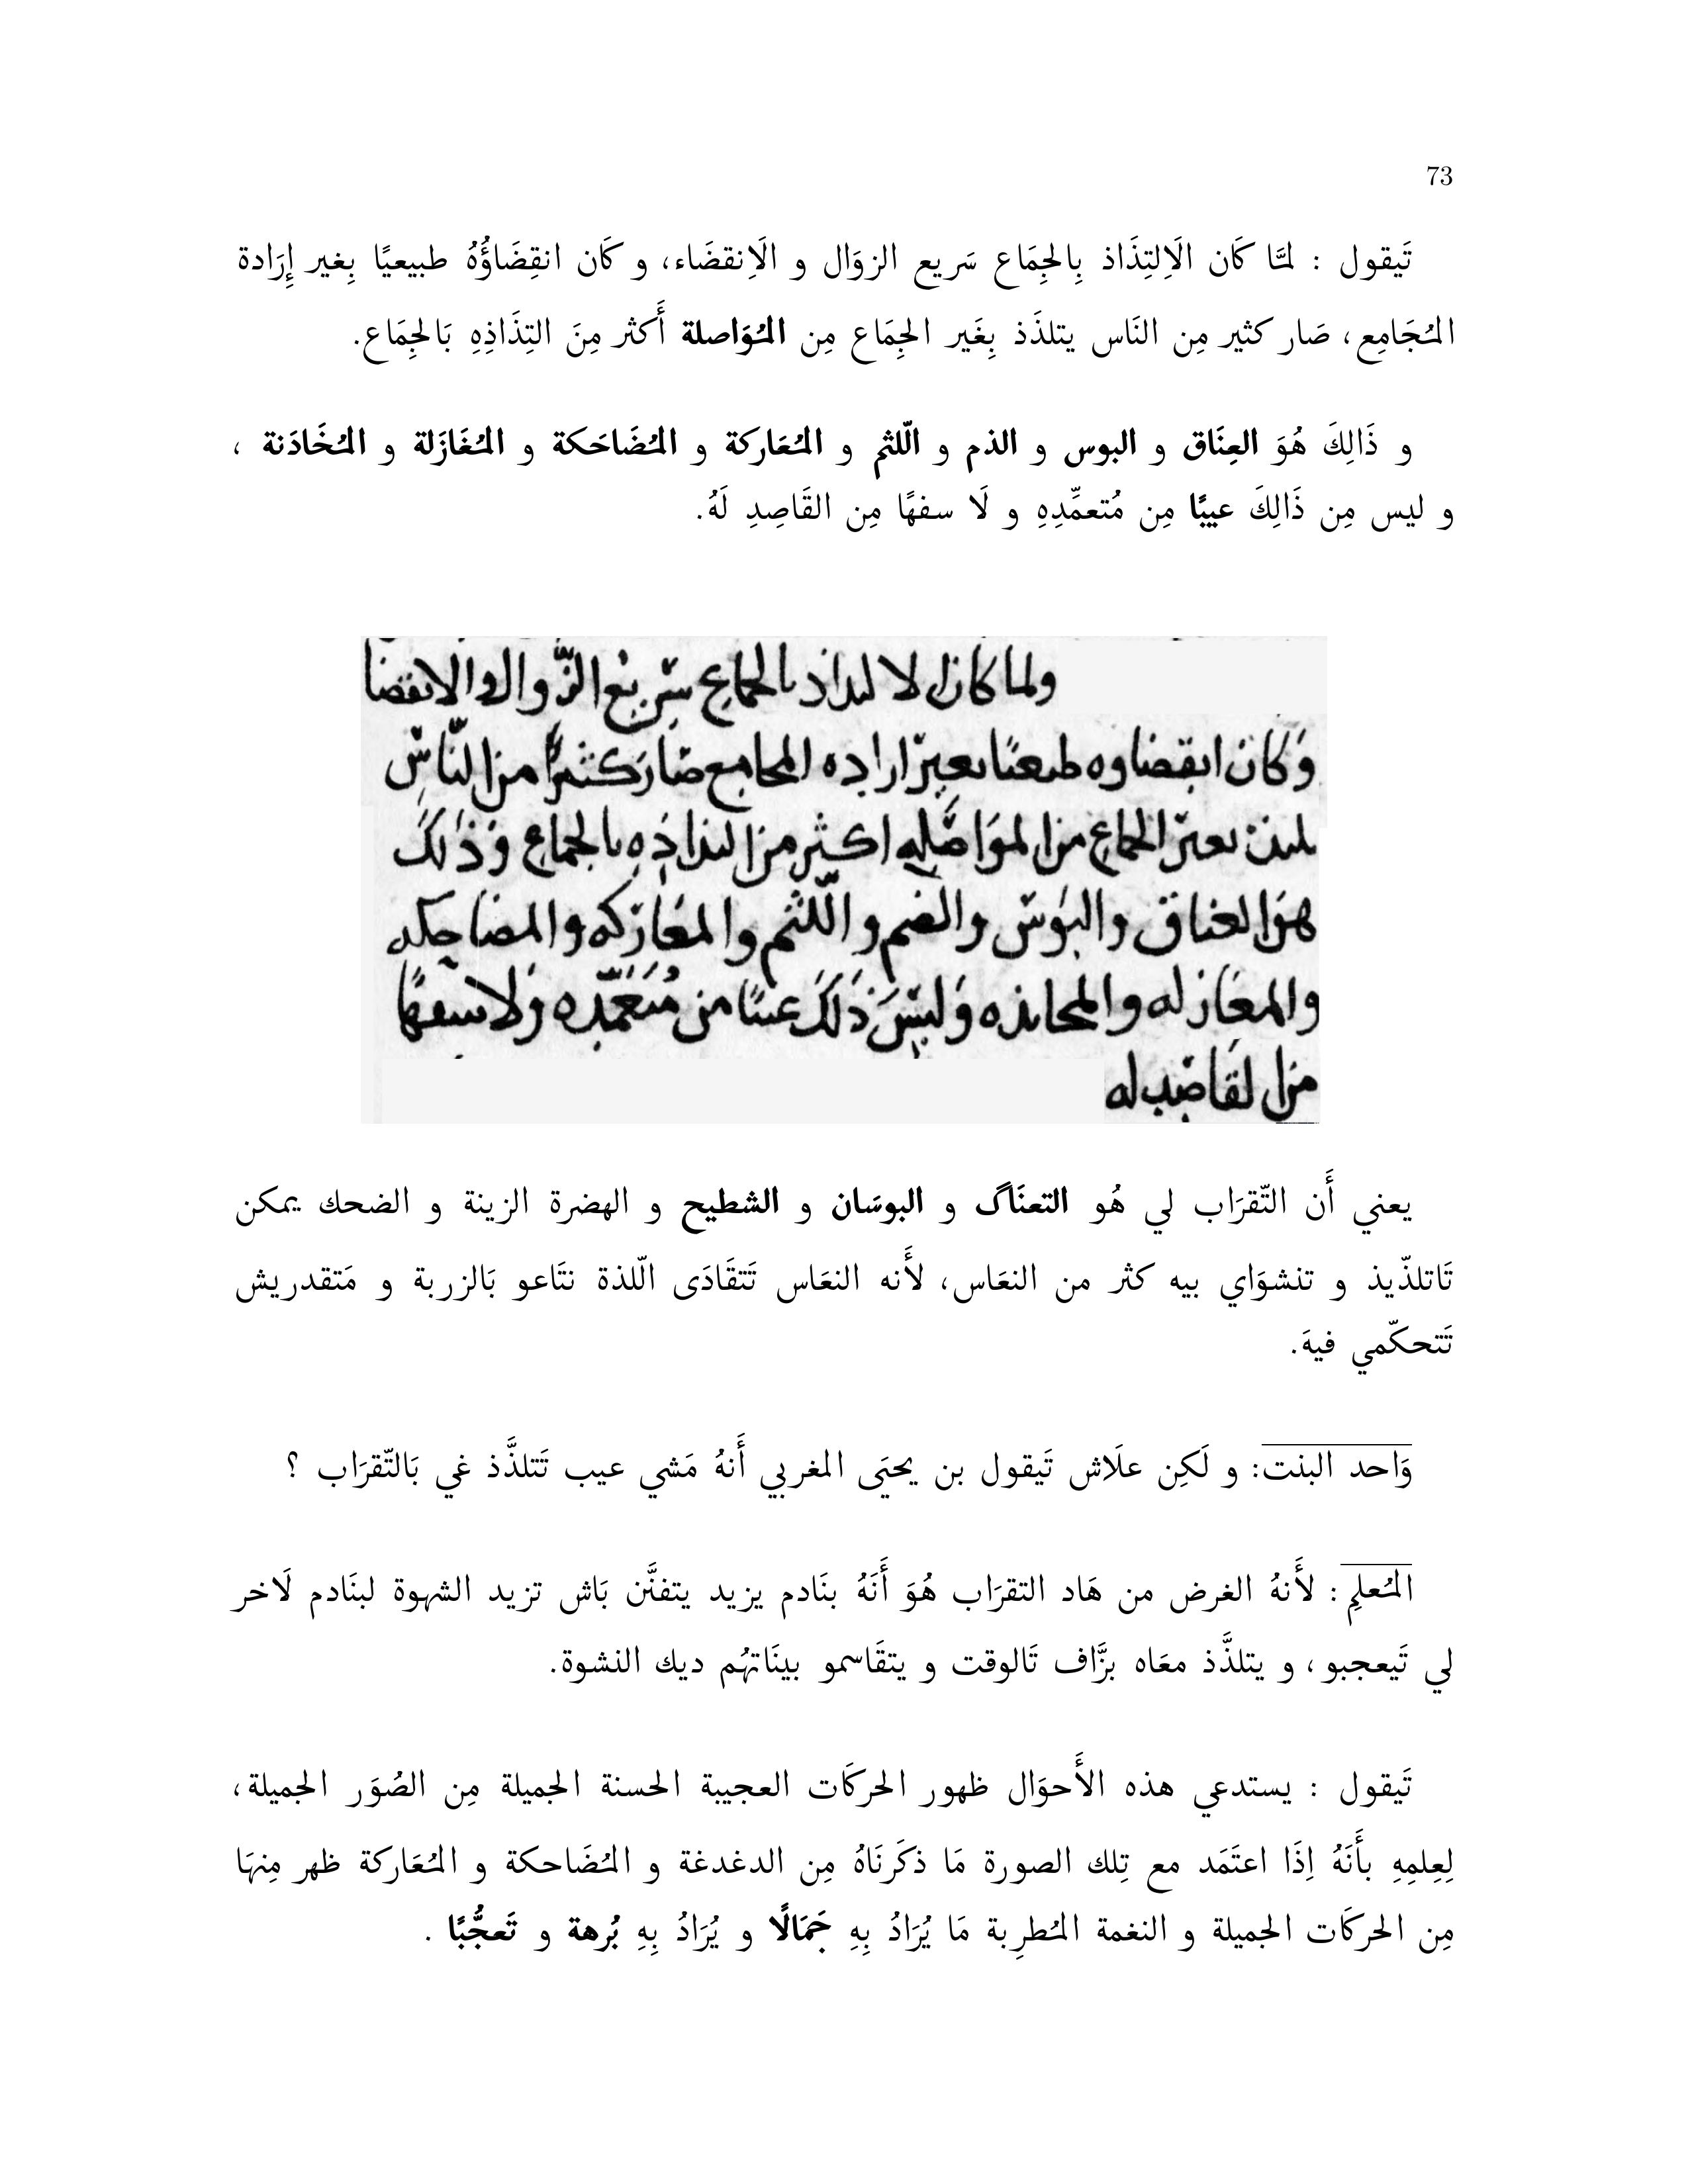 73
تَيقول : لمَّا كَان الَاِلتِذَاذ بِالجِمَاع سَريع الزوَال و الَاِنقضَاء، و كَان انقِضَاؤُهُ طبيعيًا بِغير إِرَادة
المُجَامِع، صَار كثير مِن النَاس يتلذَذ بِغَير الجِمَاع مِن المُوَاصلة أَكثر مِنَ التِذَاذِهِ بَالجِمَاع.
و ذَالِكَ هُوَ العِنَاق و البوس و الذم و الّلثم و المُعَاركة و المُضَاحَكة و المُغَازَلة و المُخَادَنة ،
و ليس مِن ذَالِكَ عيبًا مِن مُتعمِّدِهِ و لَا سفهًا مِن القَاصِدِ لَهُ.
ولما كان الالتداد بالجماع سريع الزّوال والانقضا
وَكان انقضاوه طبعيًا بغير اراده المجامع صَار كثيرًا من النّاس
يلتذ بغير الجماع من المواصله اكثر من التذاذه بالجماع وَذلك
هوَ العناق والبَوس والضم واللّثم والمعَاركه والمضاحكه
والمغازله والمخاذنه وَليسَ ذَلكَ عيبًا من مُتَعَمّده وَلا سفهًا
من القاصد له
يعني أَن التّقرَاب لي هُو التعنَاݣ و البوسَان و الشطيح و الهضرة الزينة و الضحك يمكن
تَاتلذّيذ و تنشوَاي بيه كثر من النعَاس، لأَنه النعَاس تَتقَادَى الّلذة نتَاعو بَالزربة و مَتقدريش
تَتحكّمي فيهَ.
وَاحد البنت: و لَكِن علَاش تَيقول بن يحيَى المغربي أَنهُ مَشي عيب تَتلذَّذ غي بَالتّقرَاب ؟
المُعلِم : لأَنهُ الغرض من هَاد التقرَاب هُوَ أَنَهُ بنَادم يزيد يتفنَّن بَاش تزيد الشهوة لبنَادم لَاخر
لي تَيعجبو، و يتلذَّذ معَاه بزَّاف تَالوقت و يتقَاسمو بينَاتهُم ديك النشوة.
تَيقول : يستدعي هذه الأَحوَال ظهور الحركَات العجيبة الحسنة الجميلة مِن الصُوَر الجميلة،
لِعِلمِهِ بأَنَهُ اِذَا اعتَمَد مع تِلك الصورة مَا ذكَرنَاهُ مِن الدغدغة و المُضَاحكة و المُعَاركة ظهر مِنهَا
مِن الحركَات الجميلة و النغمة المُطرِبة مَا يُرَادُ بِهِ جَمَالًا و يُرَادُ بِهِ بُرهة و تَعجُّبًا .